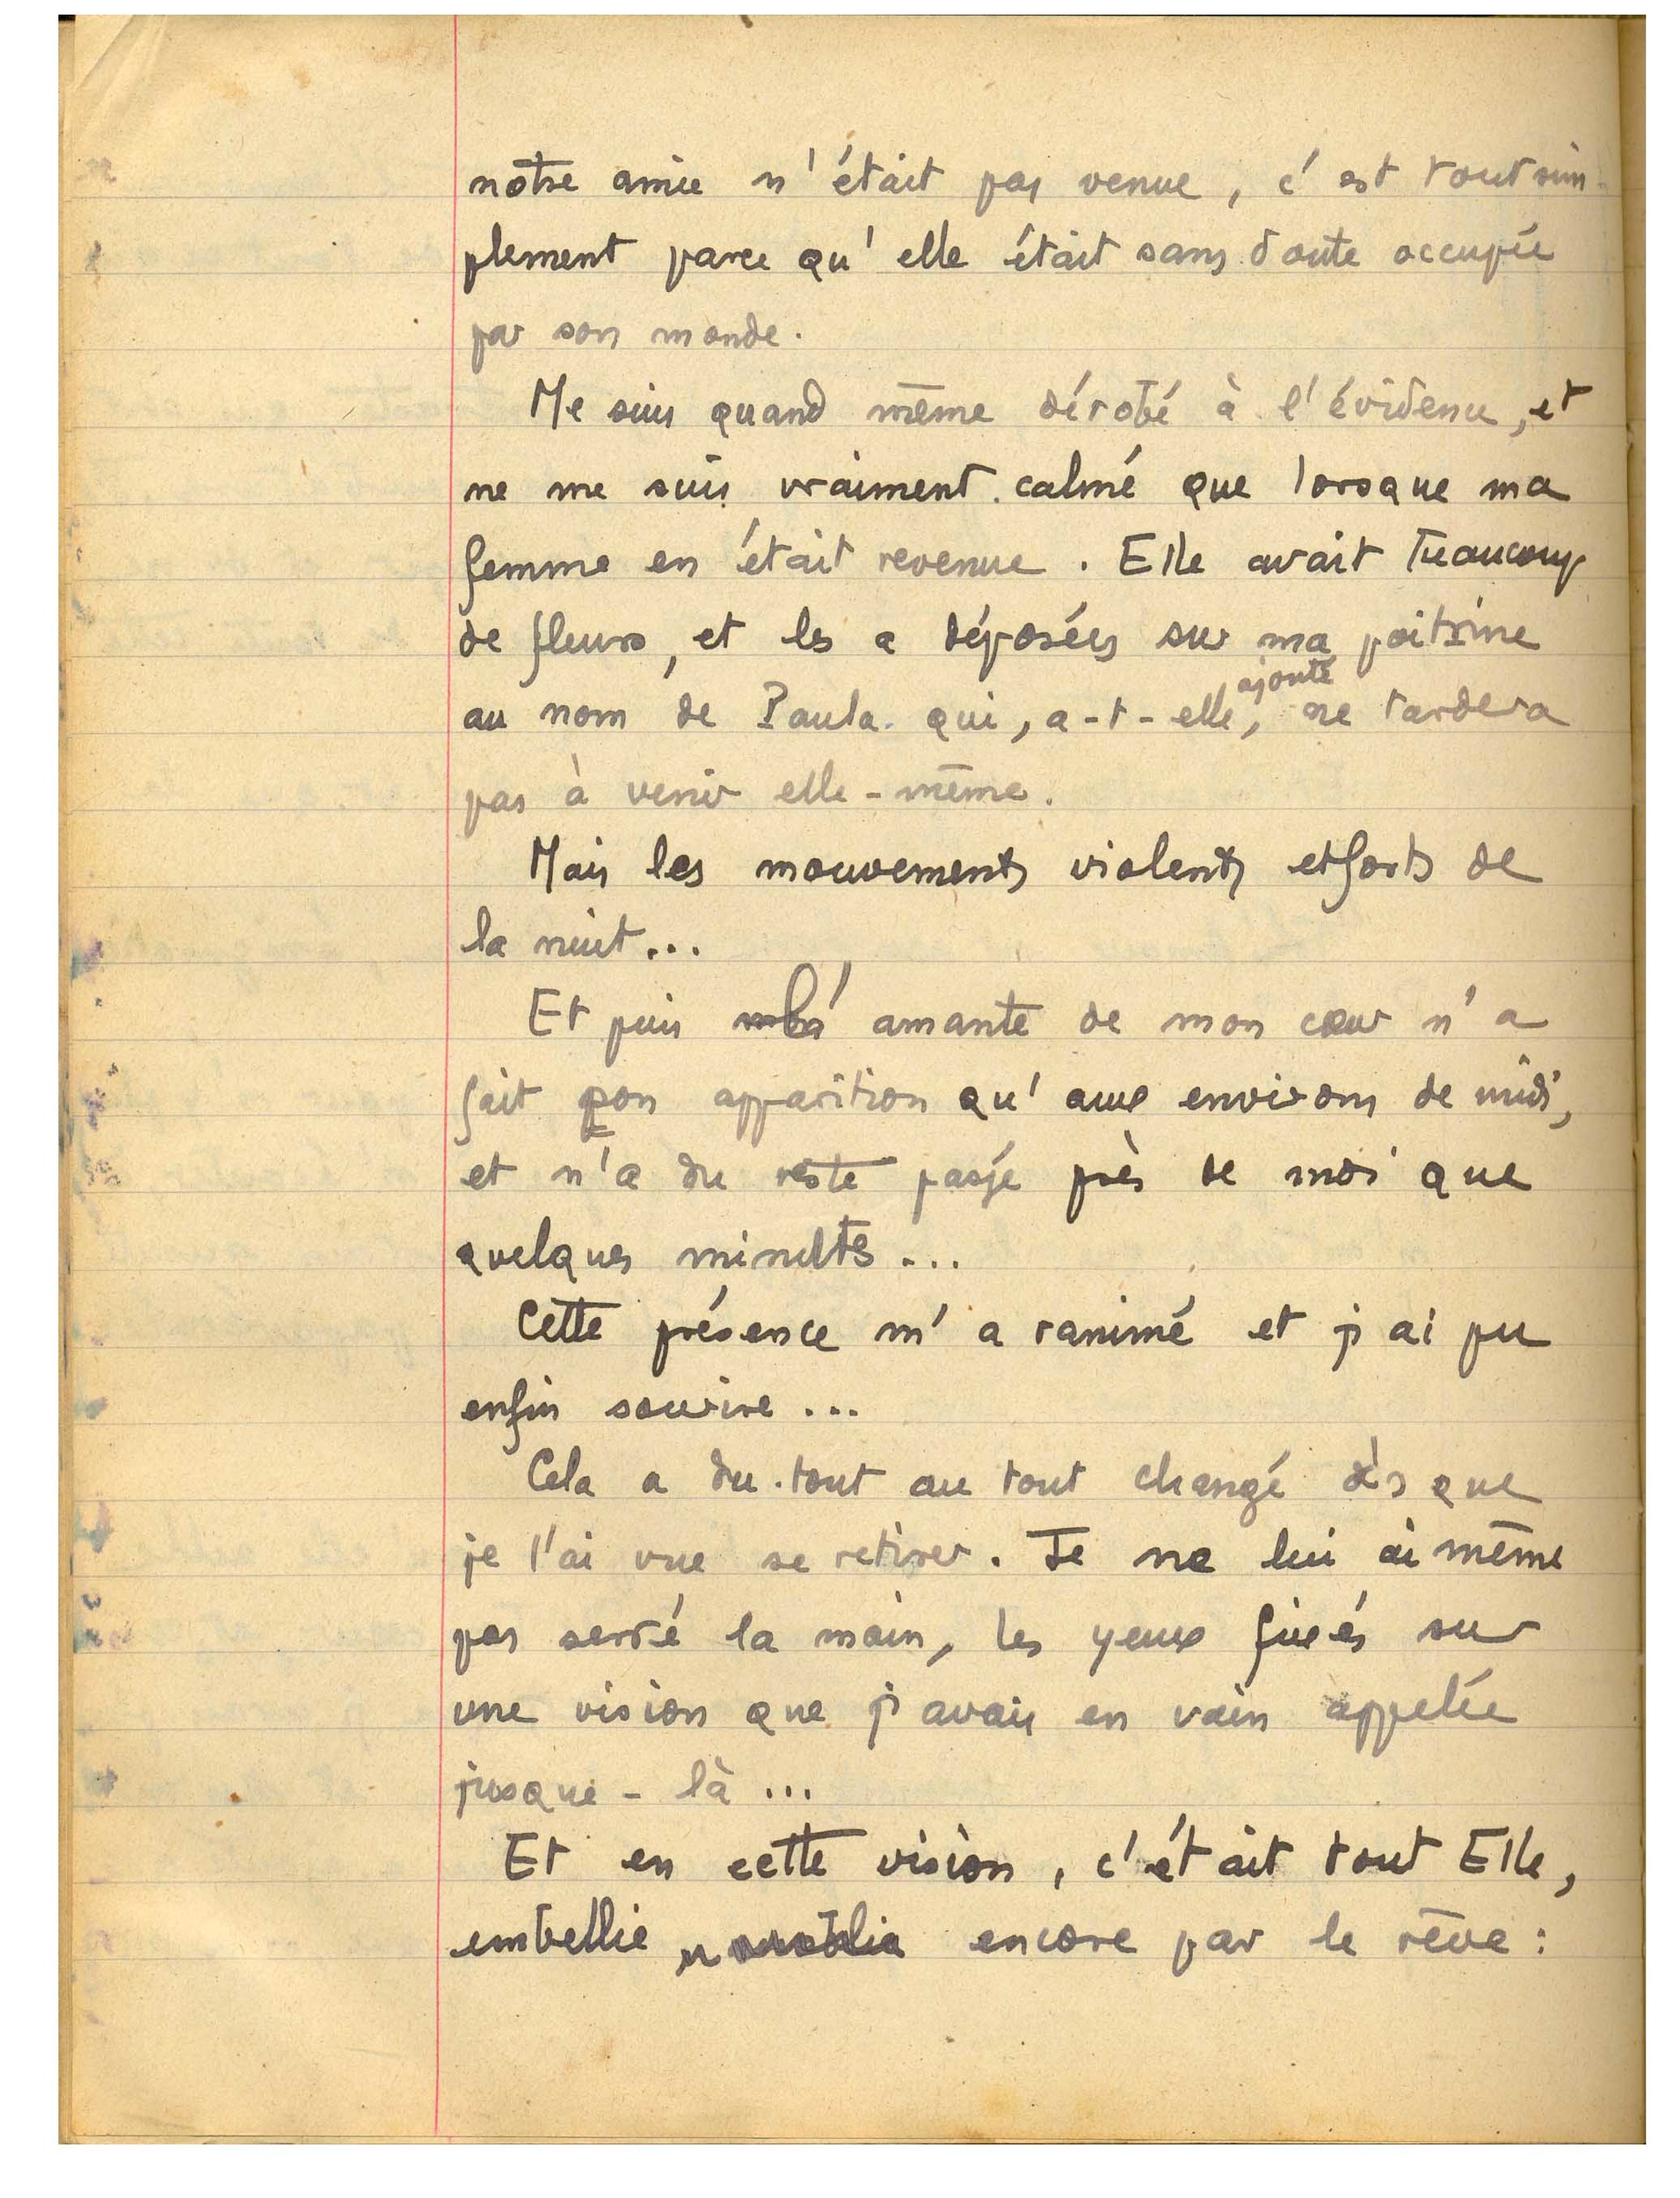 notre amie n'était pas venue, c'est tout sim-
plement parce qu'elle était sans doute occupée
par son monde.
Me suis quand même dérobé à l'évidence, et
ne me suis vraiment calmé que lorsque ma
femme en était revenue. Elle avait beaucoup
de fleurs, et les a déposées sur ma poitrine
ajouté
au nom de Paula qui, a-t-elle, ne tardera
pas à venir elle-même.
Mais les mouvements violents et forts de
la nuit...
Et puis l'amante de mon cœur n'a
fait son apparition qu'aux environs de midi,
et n'a du reste passé près de moi que
quelques minutes...
Cette présence m'a ranimé et j'ai pu
enfin sourire...
Cela a du tout au tout changé dès que
je l'ai vue se retirer. Je ne lui ai même
pas serré la main, les yeux fixés sur
une vision que j'avais en vain appelée
jusque-là...
Et en cette vision, c'était tout Elle,
embellie encore par le rêve :